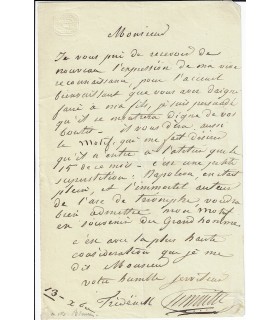 Monsieur
Je vous prie de recevoir de
nouveau l'expression de ma vive
reconnaissance pour l'accueil
bienveillant que vous avez daigné
faire à mon fils, je suis persuadé
qu'il se montrera digne de vos
bontés - il vous dira aussi
le motif qui me fait désirer
qu'il n'entre à l'atelier que le
15 de ce mois - c'est une juste
superstition: Napoléon en était
plein, et l'immortel auteur
de l'arc de triomphe voudra
bien admettre mon motif
en souvenir du Grand homme
c'est avec la plus haute
considération que je me
dis Monsieur
votre humble serviteur
13 -
Frédérick Lemaître